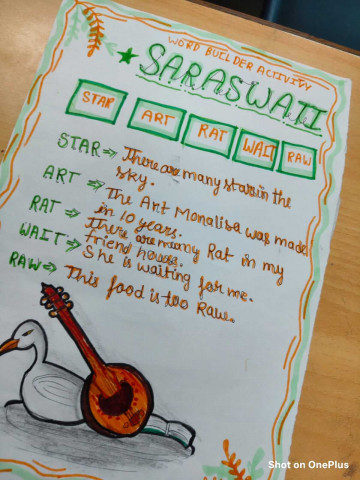 WORD BUILDER ACTIVITY
★ SARASWATI
STAR ART RAT WAIT RAW
STAR ⇒ There are many stars in the
sky.
ART ⇒ The Art Monalisa was made
in 10 years.
RAT ⇒ There are many Rat in my
friend house.
WAIT ⇒ She is waiting for me.
RAW ⇒ This food is too Raw.
Shot on OnePlus